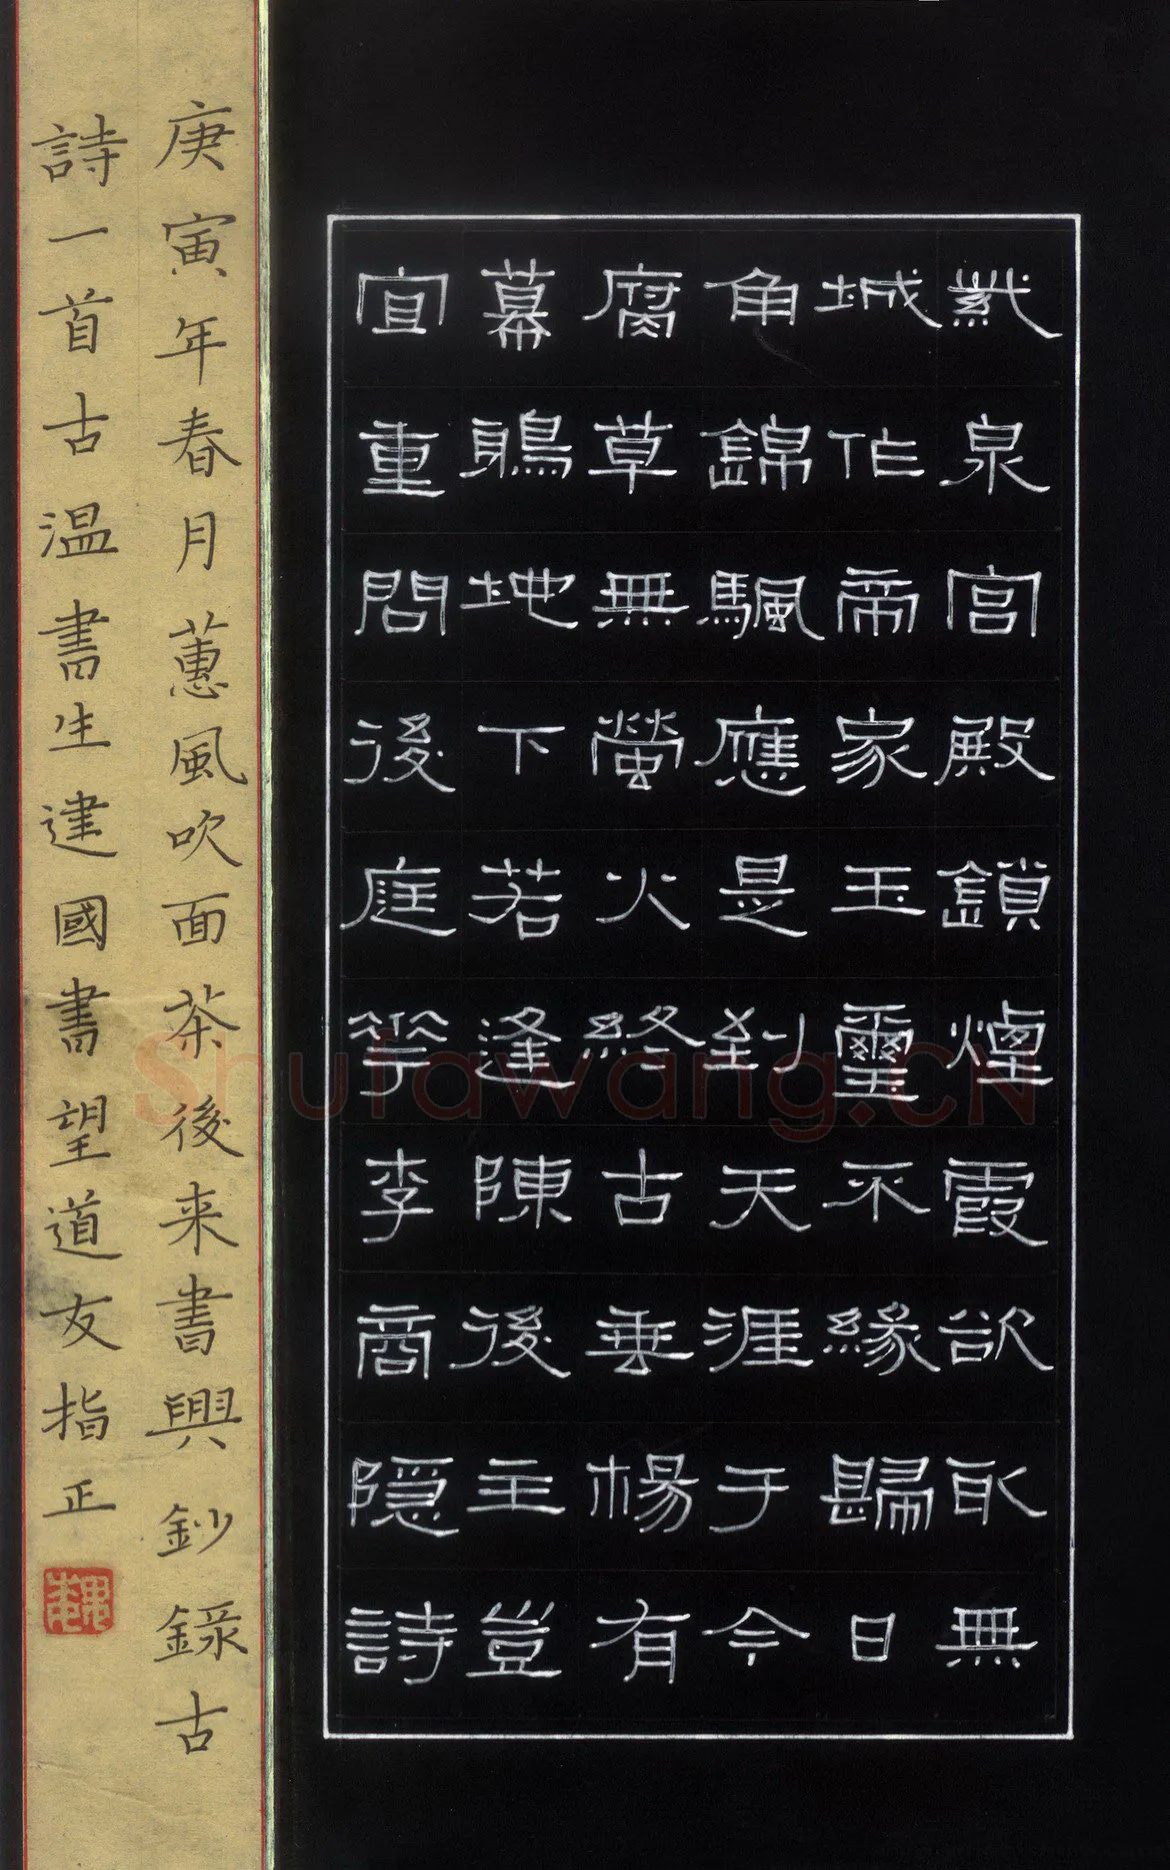 紫泉宮殿鎖煙霞欲取無
城作帝家玉璽不緣歸日
角錦颿應是到天涯于今
腐草無螢火終古垂楊有
暮鴉地下若逢陳後主豈
宜重問後庭花李商隱詩
庚寅年春月蕙風吹面茶後来書興鈔錄古
詩一首古温書生建國書望道友指正
Shufawang.CN